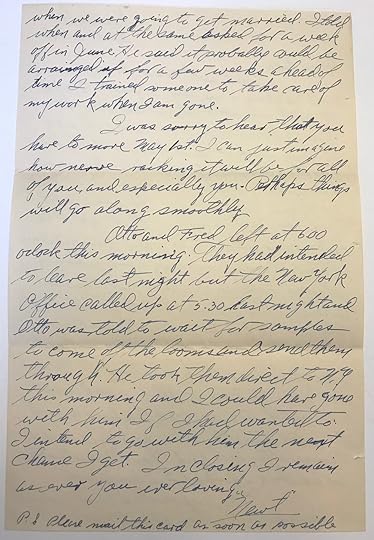 when we were going to get married. I told
when and at the same asked for a week
off in June. He said it probably could be
arrainged if for a few weeks ahead of
time I trained someone to take care of
my work when I am gone.
I was sorry to hear that you
have to move May 1st. I can just imagine
how nerve racking it will be for all
of you, and especially you. Perhaps things
will go along smoothly.
Otto and Fred left at 6:00
oclock this morning. They had intended
to leave last night but the New York
Office called up at 5:30 last night and
Otto was told to wait for samples
to come off the looms and send them
through. He took them direct to N.Y.
this morning and I could have gone
with him If I had wanted to.
I intend to go with him the next
chance I get. In closing I remain
as ever you ever loving
"Newt"
P.S Please mail this card as soon as possible